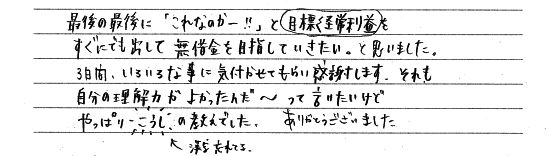 最後の最後に「これなのかー!!」と目標経常利益を
すぐにでも出して無借金を目指していきたい。と思いました。
3日間、いろいろな事に気付かせてもらい感謝します。それも
自分の理解力がよかったんだ〜って言いたいけど
やっぱり…の教えでした。ありがとうございました
忘れてる。